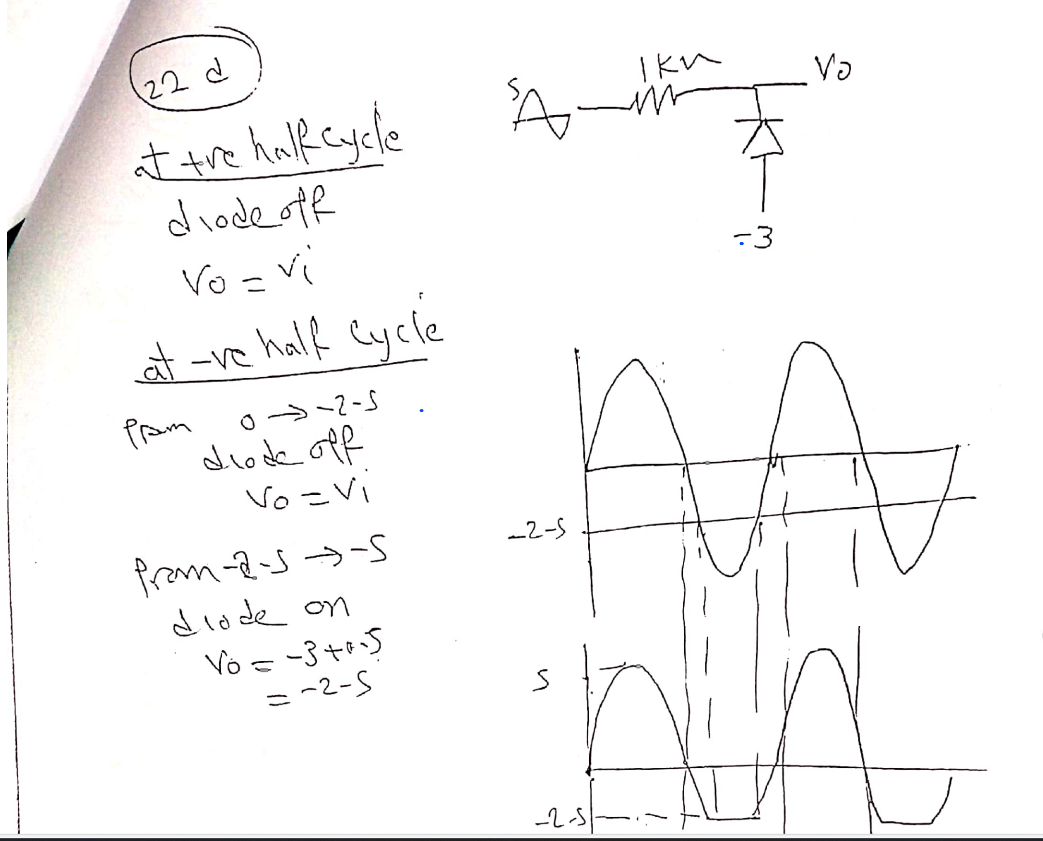 22 d
at +ve half cycle
diode off
Vo = Vi
at -ve half cycle
from 0 → -2-5
diode off
Vo = Vi
from -2-5 → -5
diode on
Vo = -3+0.5
= -2-5
5
1KΩ
Vo
-3
-2-5
5
-2-5